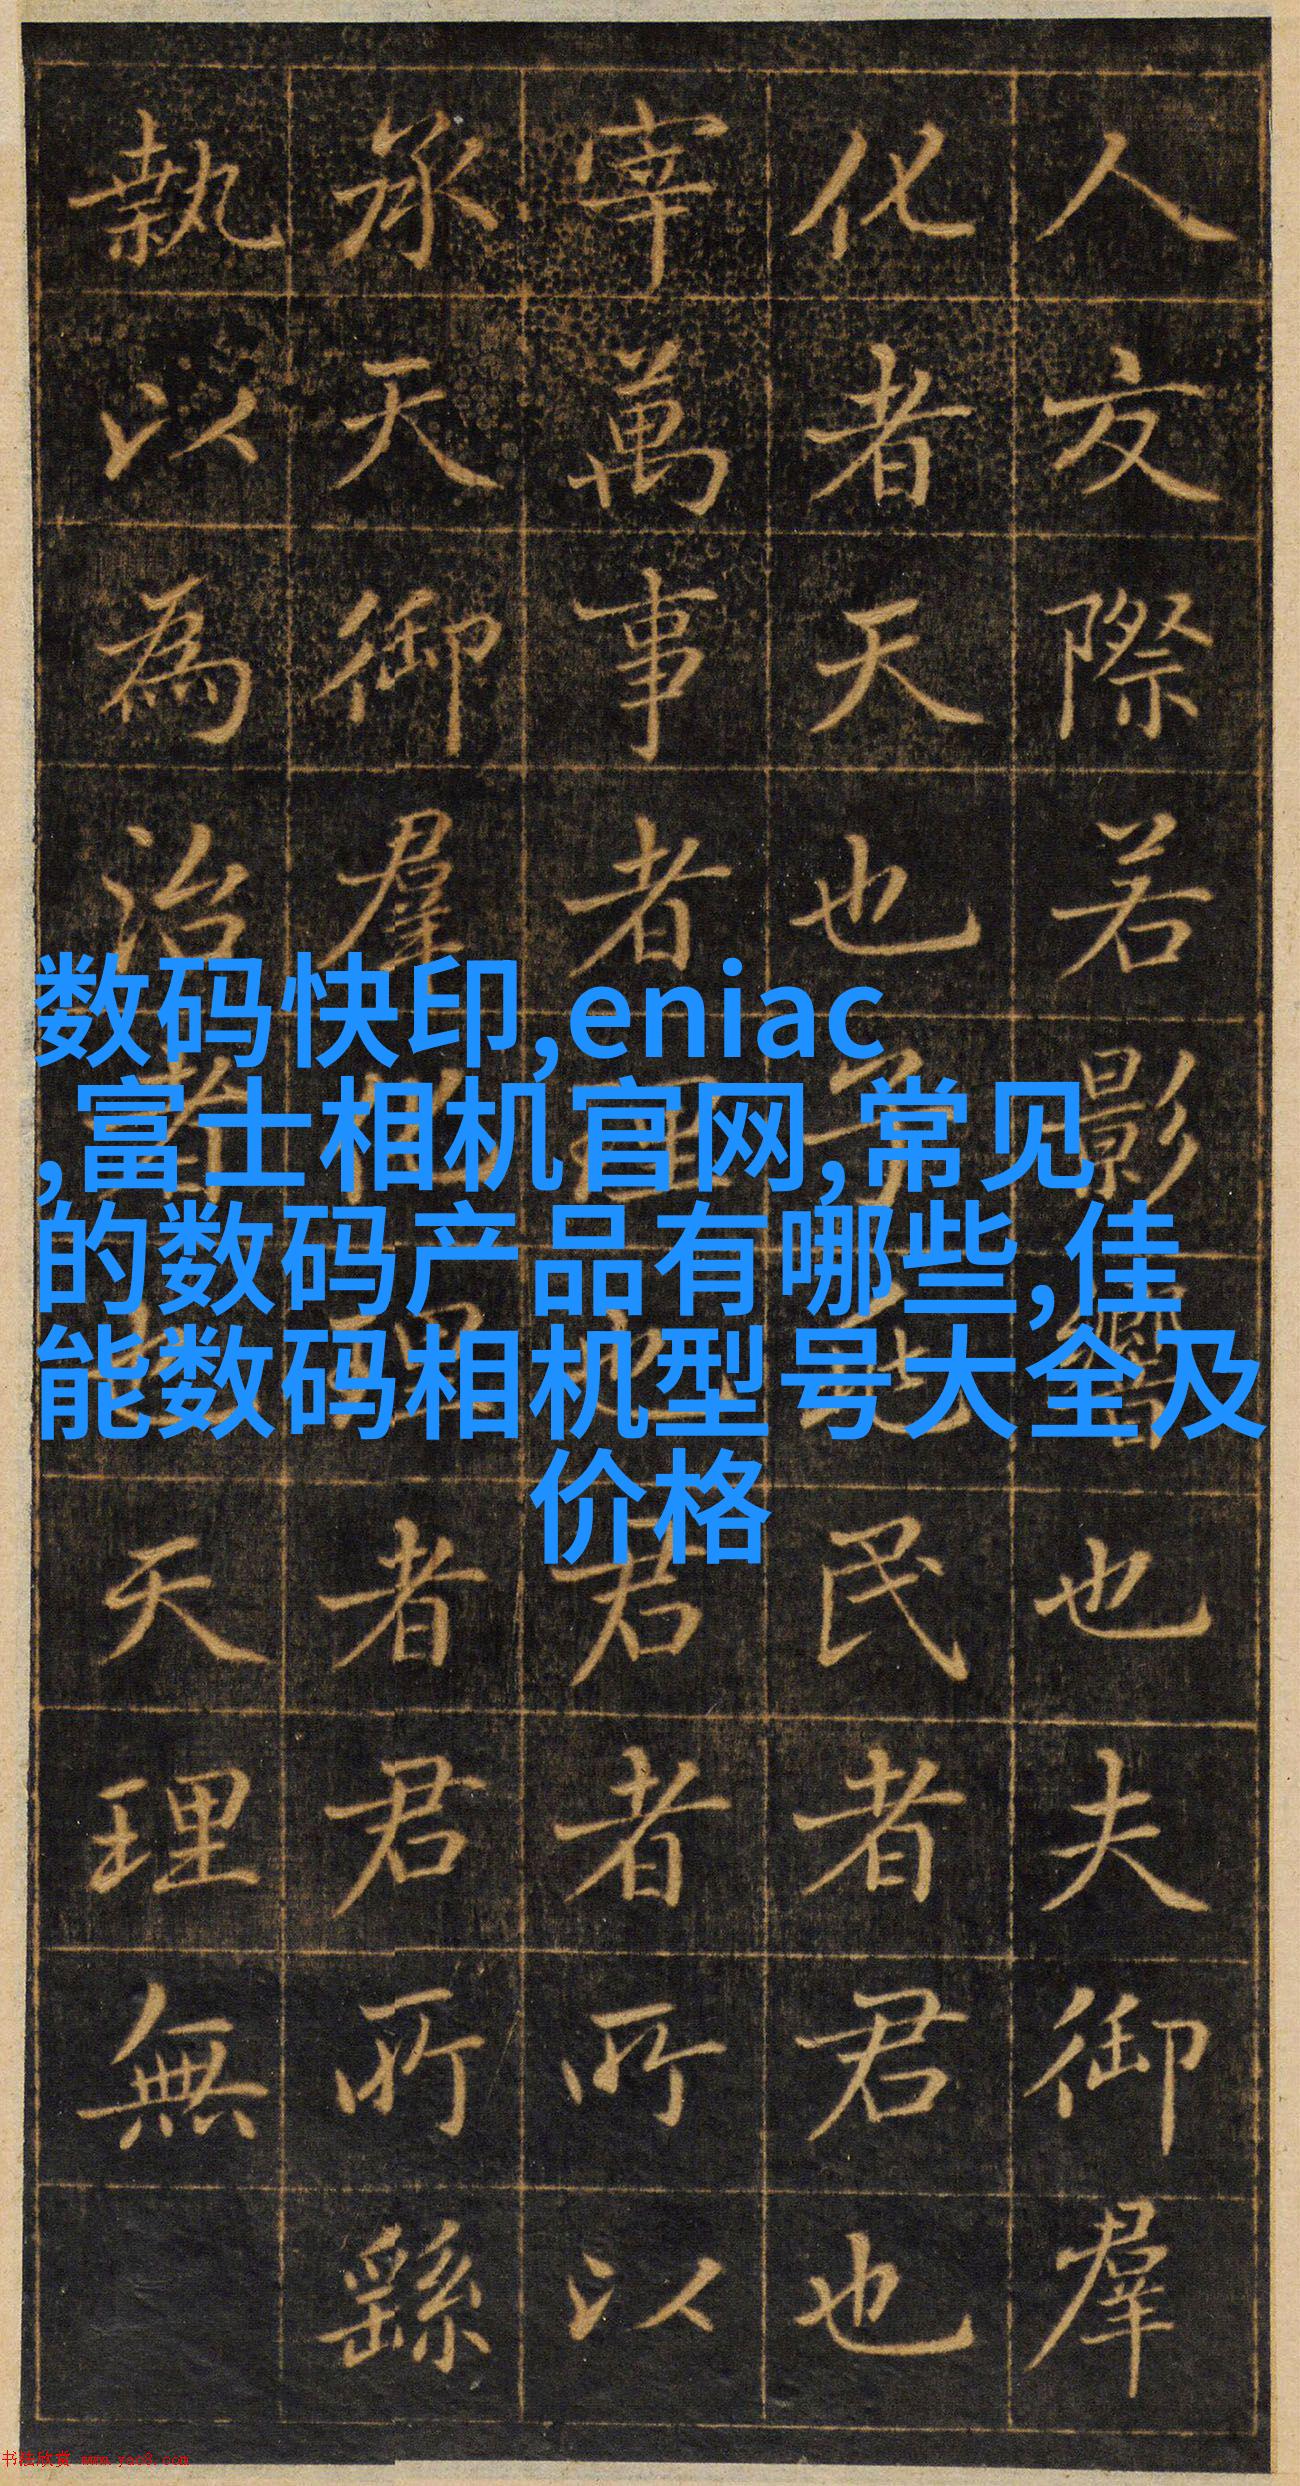 人交際若影響也夫御羣
化者天也子民者君也
宰萬事者臣也君者所以
承天御羣理者君所繇
執以為治者也天理無
数码快印,eniac
,富士相机官网,常见
的数码产品有哪些,佳
能数码相机型号大全及
价格
书法欣赏 www.yac8.com